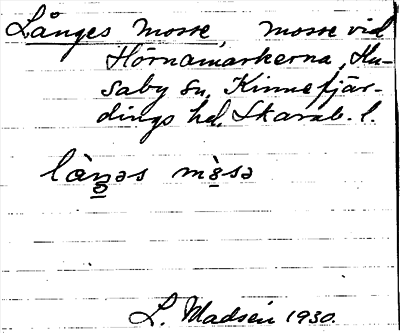 Långes mosse, mosse vid
Hörnamarkerna, Hu-
saby sn, Kinnefjär-
dings hd, Skarab. l.
L. Madsén 1930.